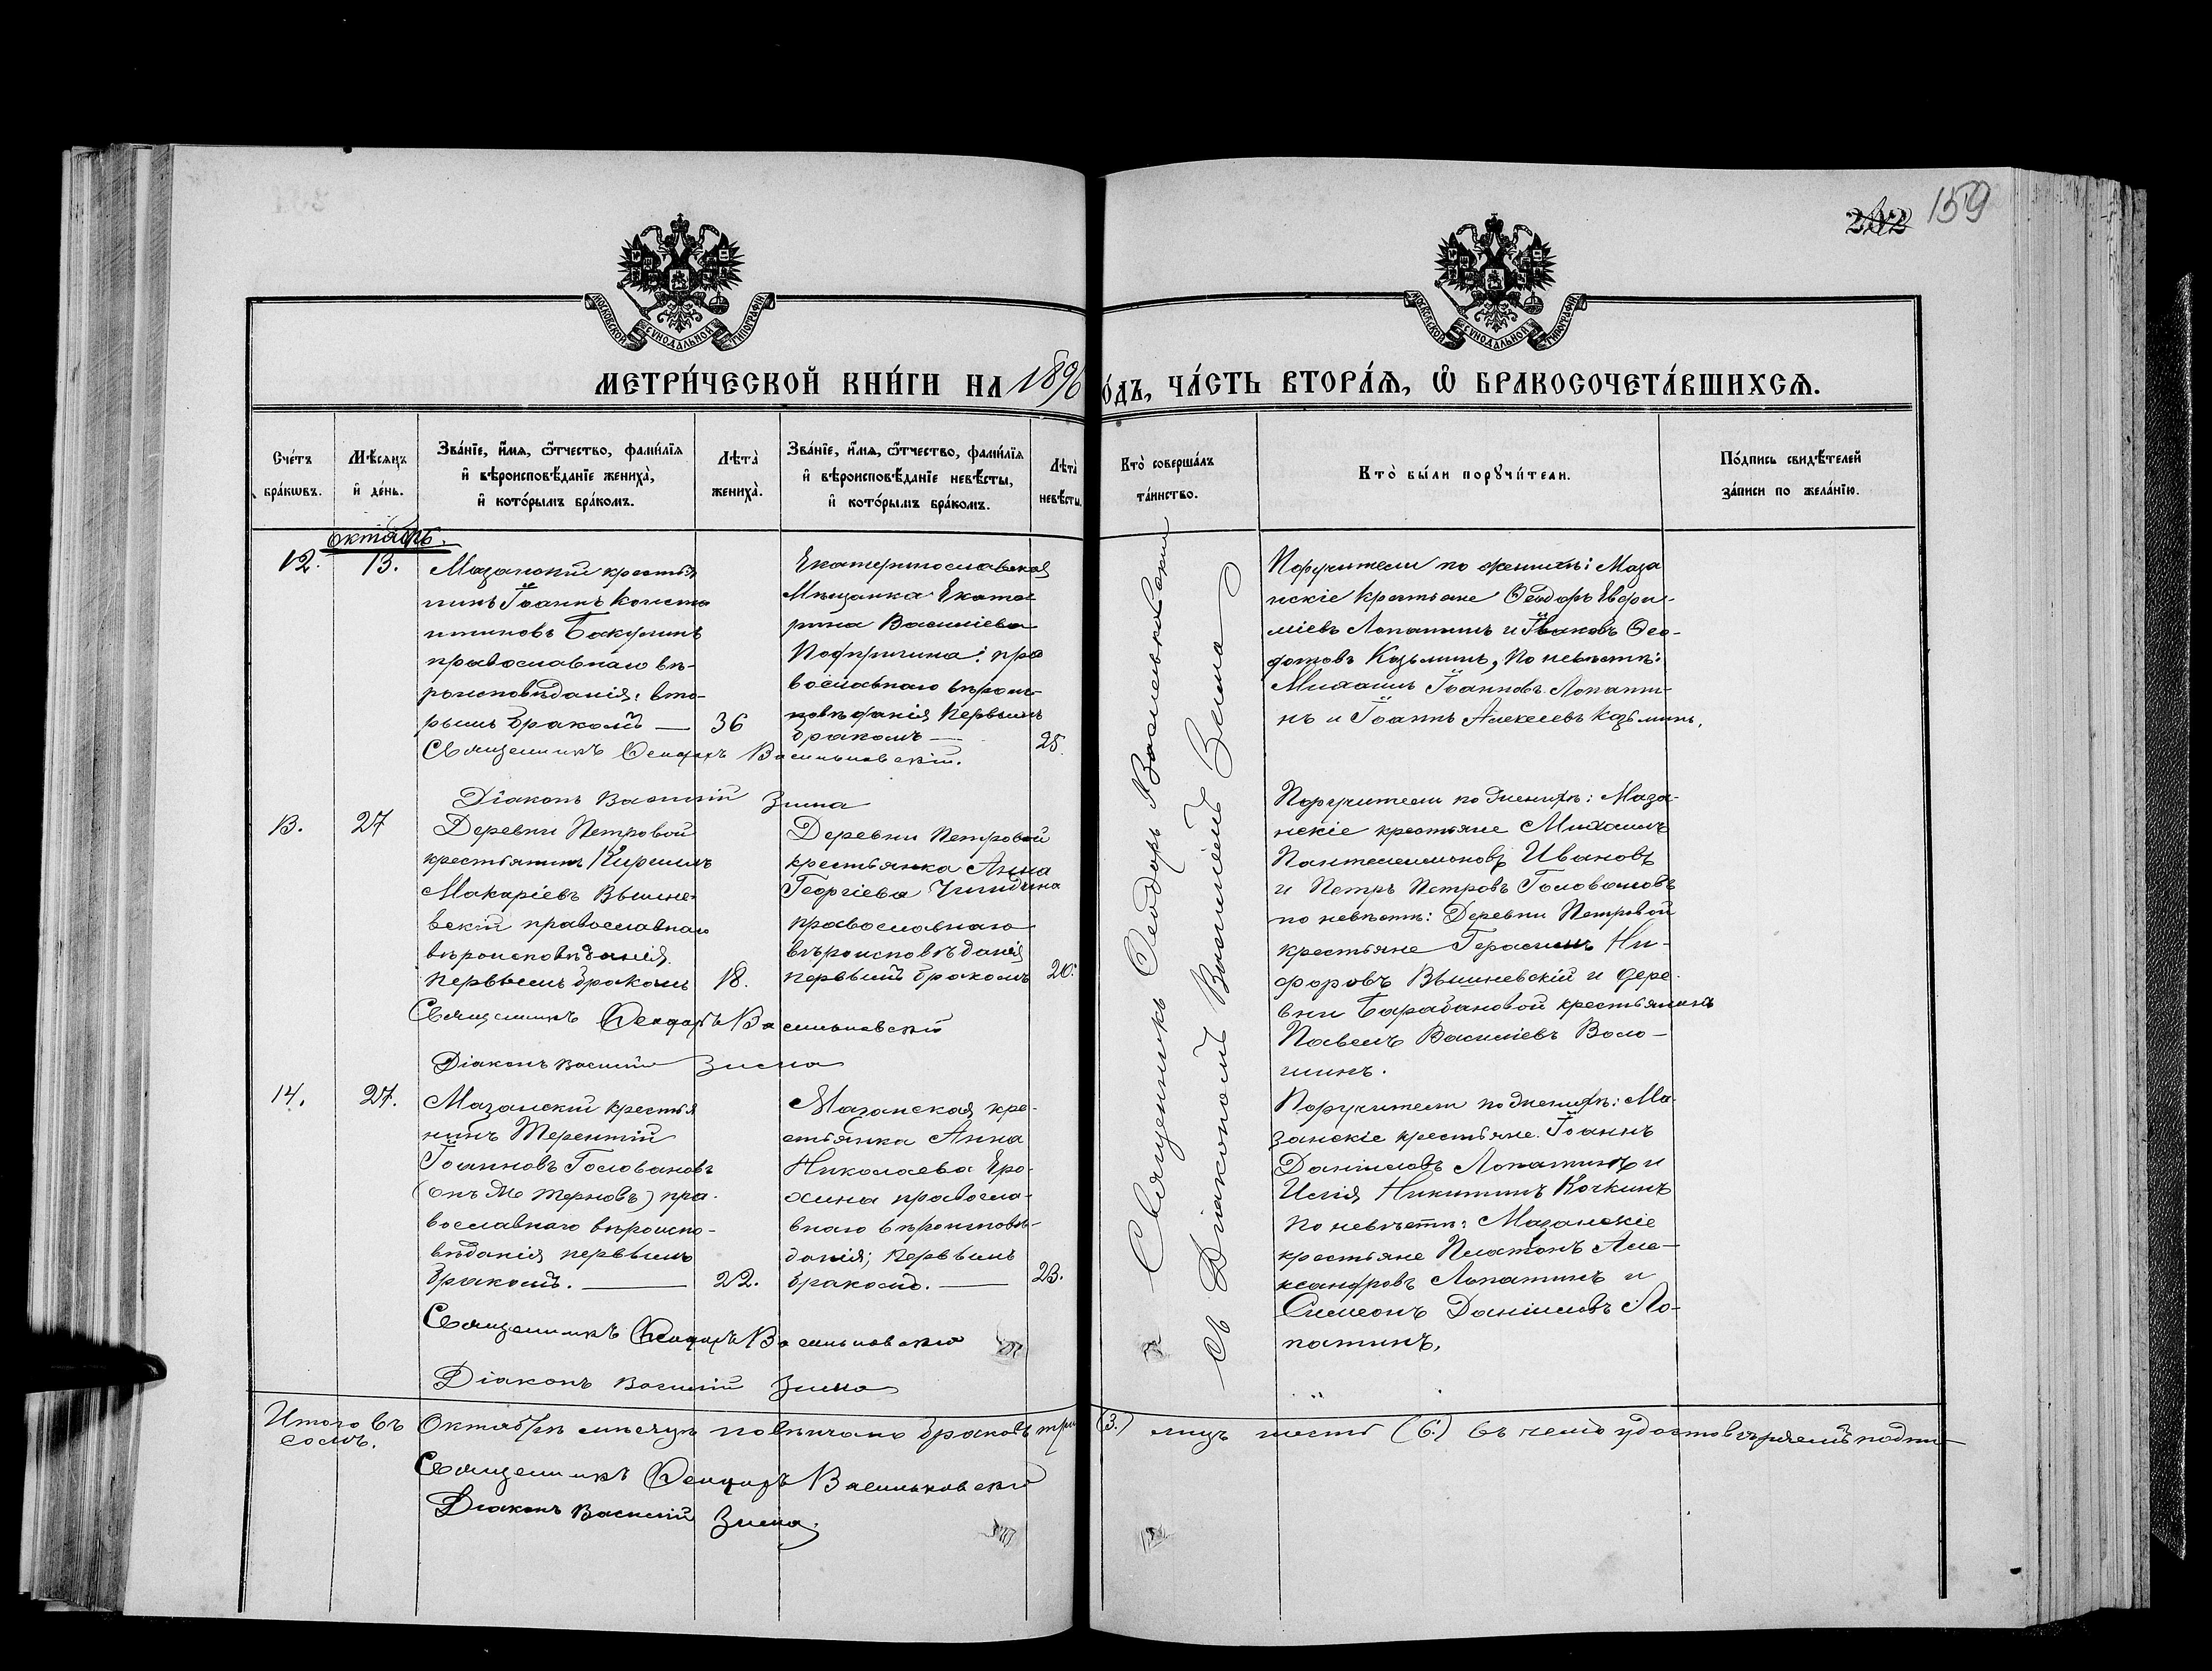 159
МОСКОВСКОЙ СѴНОДАЛЬНОЙ ТИПОГРАФІИ
МОСКОВСКОЙ СѴНОДАЛЬНОЙ ТИПОГРАФІИ
МЕТРИ́ЧЕСКОЙ КНИ́ГИ НА 1896 О́ДЪ, ЧА́СТЬ ВТОРА́Ѧ, Ѽ БРАКОСОЧЕТА́ВШИХСѦ.
Сче́тъ
бра́кѡвъ.
Мѣ́сяцъ
и҆ де́нь.
Зва́нїе, и҆́мѧ, ѻ҆́тчество, фами́лїѧ
и҆ вѣроисповѣ́данїе жениха̀,
и҆ кото́рымъ бра́комъ.
Лѣта̀
жениха̀.
Зва́нїе, и҆́мѧ, ѻ҆́тчество, фами́лїѧ
и҆ вѣроисповѣ́данїе невѣ́сты,
и҆ кото́рымъ бра́комъ.
Лѣта̀
невѣ́сты.
Кто̀ соверша́лъ
та́инство.
Кто̀ бы́ли порꙋчи́тели.
По́дпись свидѣ́телей
за́писи по жела́нїю.
октябрь.
12.
13.
Мазанский крестья
нинъ Іоаннъ Конста
нтиновъ Бакулинъ
православнаго вѣ-
роисповѣданія: вто-
рымъ бракомъ —
36
Екатеринославская
Мѣщанка Екате
рина Васильева
пра
вославнаго вѣроис-
повѣданія Первымъ
бракомъ —
25.
Священникъ Ѳеодоръ Васильковскій.
Діаконъ Василій Зима
Поручители по женихѣ: Маза
нскіе крестьяне Ѳеодоръ Евфи-
міевъ Лопатинъ и Іаковъ Ѳео-
дотовъ Козьминъ, по невѣстѣ:
Михаилъ Іоанновъ Лопати-
нъ и Іоаннъ Алексеевъ Козьминъ.
13.
27
Деревни Петровой
крестьянинъ Кириллъ
Макаріевъ Вышне-
вскій православнаго
вѣроисповѣданія.
Первымъ бракомъ
18.
Деревни Петровой
крестьянка Анна
Георгіева
православнаго
вѣроисповѣданія
первымъ бракомъ
20.
Священникъ Ѳеодоръ Васильковскій
Діаконъ Василій Зима
Поручители по женихѣ: Маза-
нскіе крестьяне Михаилъ
Пантелеимоновъ Ивановъ
и Петръ Петровъ Головановъ
по невѣстѣ: Деревни Петровой
крестьяне Герасимъ Ни-
форовъ Вышневскій и дере-
вни Барабановой крестьянинъ
Павелъ Василіевъ Воло-
шинъ.
14.
27.
Мазанскій крестья
нинъ Терентій
Іоанновъ Головановъ
(онъ же Терновъ) пра-
вославнаго вѣроиспо-
вѣданія первымъ
бракомъ. —
22.
Мазанская кре-
стьянка Анна
Николаева Еро-
хина правосла-
внаго вѣроисповѣ-
данія; первымъ
бракомъ. —
23.
Священникъ Ѳеодоръ Васильковскій
Діаконъ Василій Зима
Поручители по женихѣ: Ма-
занскіе крестьяне. Іоаннъ
Даніиловъ Лопатинъ и
Илія Никитинъ Кочкинъ
По невѣстѣ: Мазанскіе
крестьяне Платонъ Але-
ксандровъ Лопатинъ и
Симеонъ Даніиловъ Ло-
патинъ.
Священникъ Ѳеодоръ Васильковскій
съ Діакономъ Василіемъ Зима
Итого въ Октябрѣ мѣсяцѣ повѣнчано браковъ три (3.) лицъ шесть (6.) въ чемъ удостовѣряемъ подпи-
семъ.
Священникъ Ѳеодоръ Васильковскій
Діаконъ Василій Зима